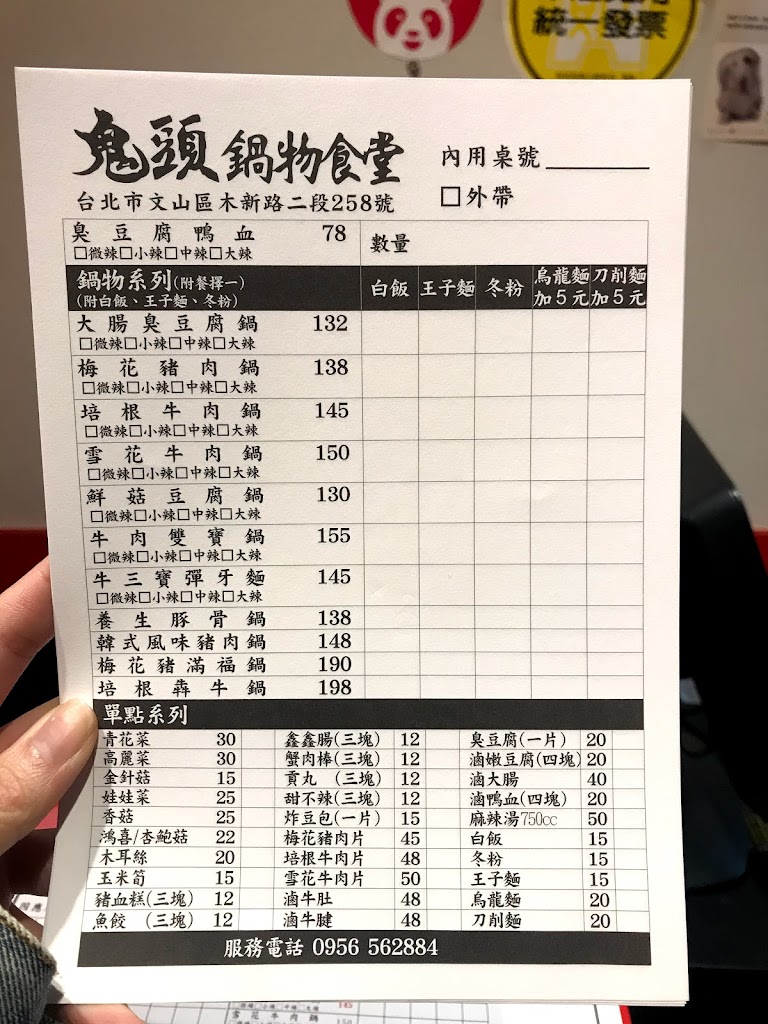 統一發票
鬼頭 鍋物食堂
內用桌號
台北市文山區木新路二段258號
□外帶
臭豆腐鴨血 78 數量
□微辣□小辣□中辣□大辣
鍋物系列(附餐擇一) 白飯 王子麵 冬粉 烏龍麵加5元 刀削麵加5元
(附白飯、王子麵、冬粉)
大腸臭豆腐鍋 132
□微辣□小辣□中辣□大辣
梅花豬肉鍋 138
□微辣□小辣□中辣□大辣
培根牛肉鍋 145
□微辣□小辣□中辣□大辣
雪花牛肉鍋 150
□微辣□小辣□中辣□大辣
鮮菇豆腐鍋 130
□微辣□小辣□中辣□大辣
牛肉雙寶鍋 155
□微辣□小辣□中辣□大辣
牛三寶彈牙麵 145
□微辣□小辣□中辣□大辣
養生豚骨鍋 138
韓式風味豬肉鍋 148
梅花豬滿福鍋 190
培根犇牛鍋 198
單點系列
青花菜 30 鑫鑫腸(三塊) 12 臭豆腐(一片) 20
高麗菜 30 蟹肉棒(三塊) 12 滷嫩豆腐(四塊) 20
金針菇 15 貢丸 (三塊) 12 滷大腸 40
娃娃菜 25 甜不辣(三塊) 12 滷鴨血(四塊) 20
香菇 25 炸豆包(一片) 15 麻辣湯750cc 50
鴻喜/杏鮑菇 22 梅花豬肉片 45 白飯 15
木耳絲 20 培根牛肉片 48 冬粉 15
玉米筍 15 雪花牛肉片 50 王子麵 15
豬血糕(三塊) 12 滷牛肚 48 烏龍麵 20
魚餃 (三塊) 12 滷牛腱 48 刀削麵 20
服務電話 0956 562884
雪花牛肉鍋 150